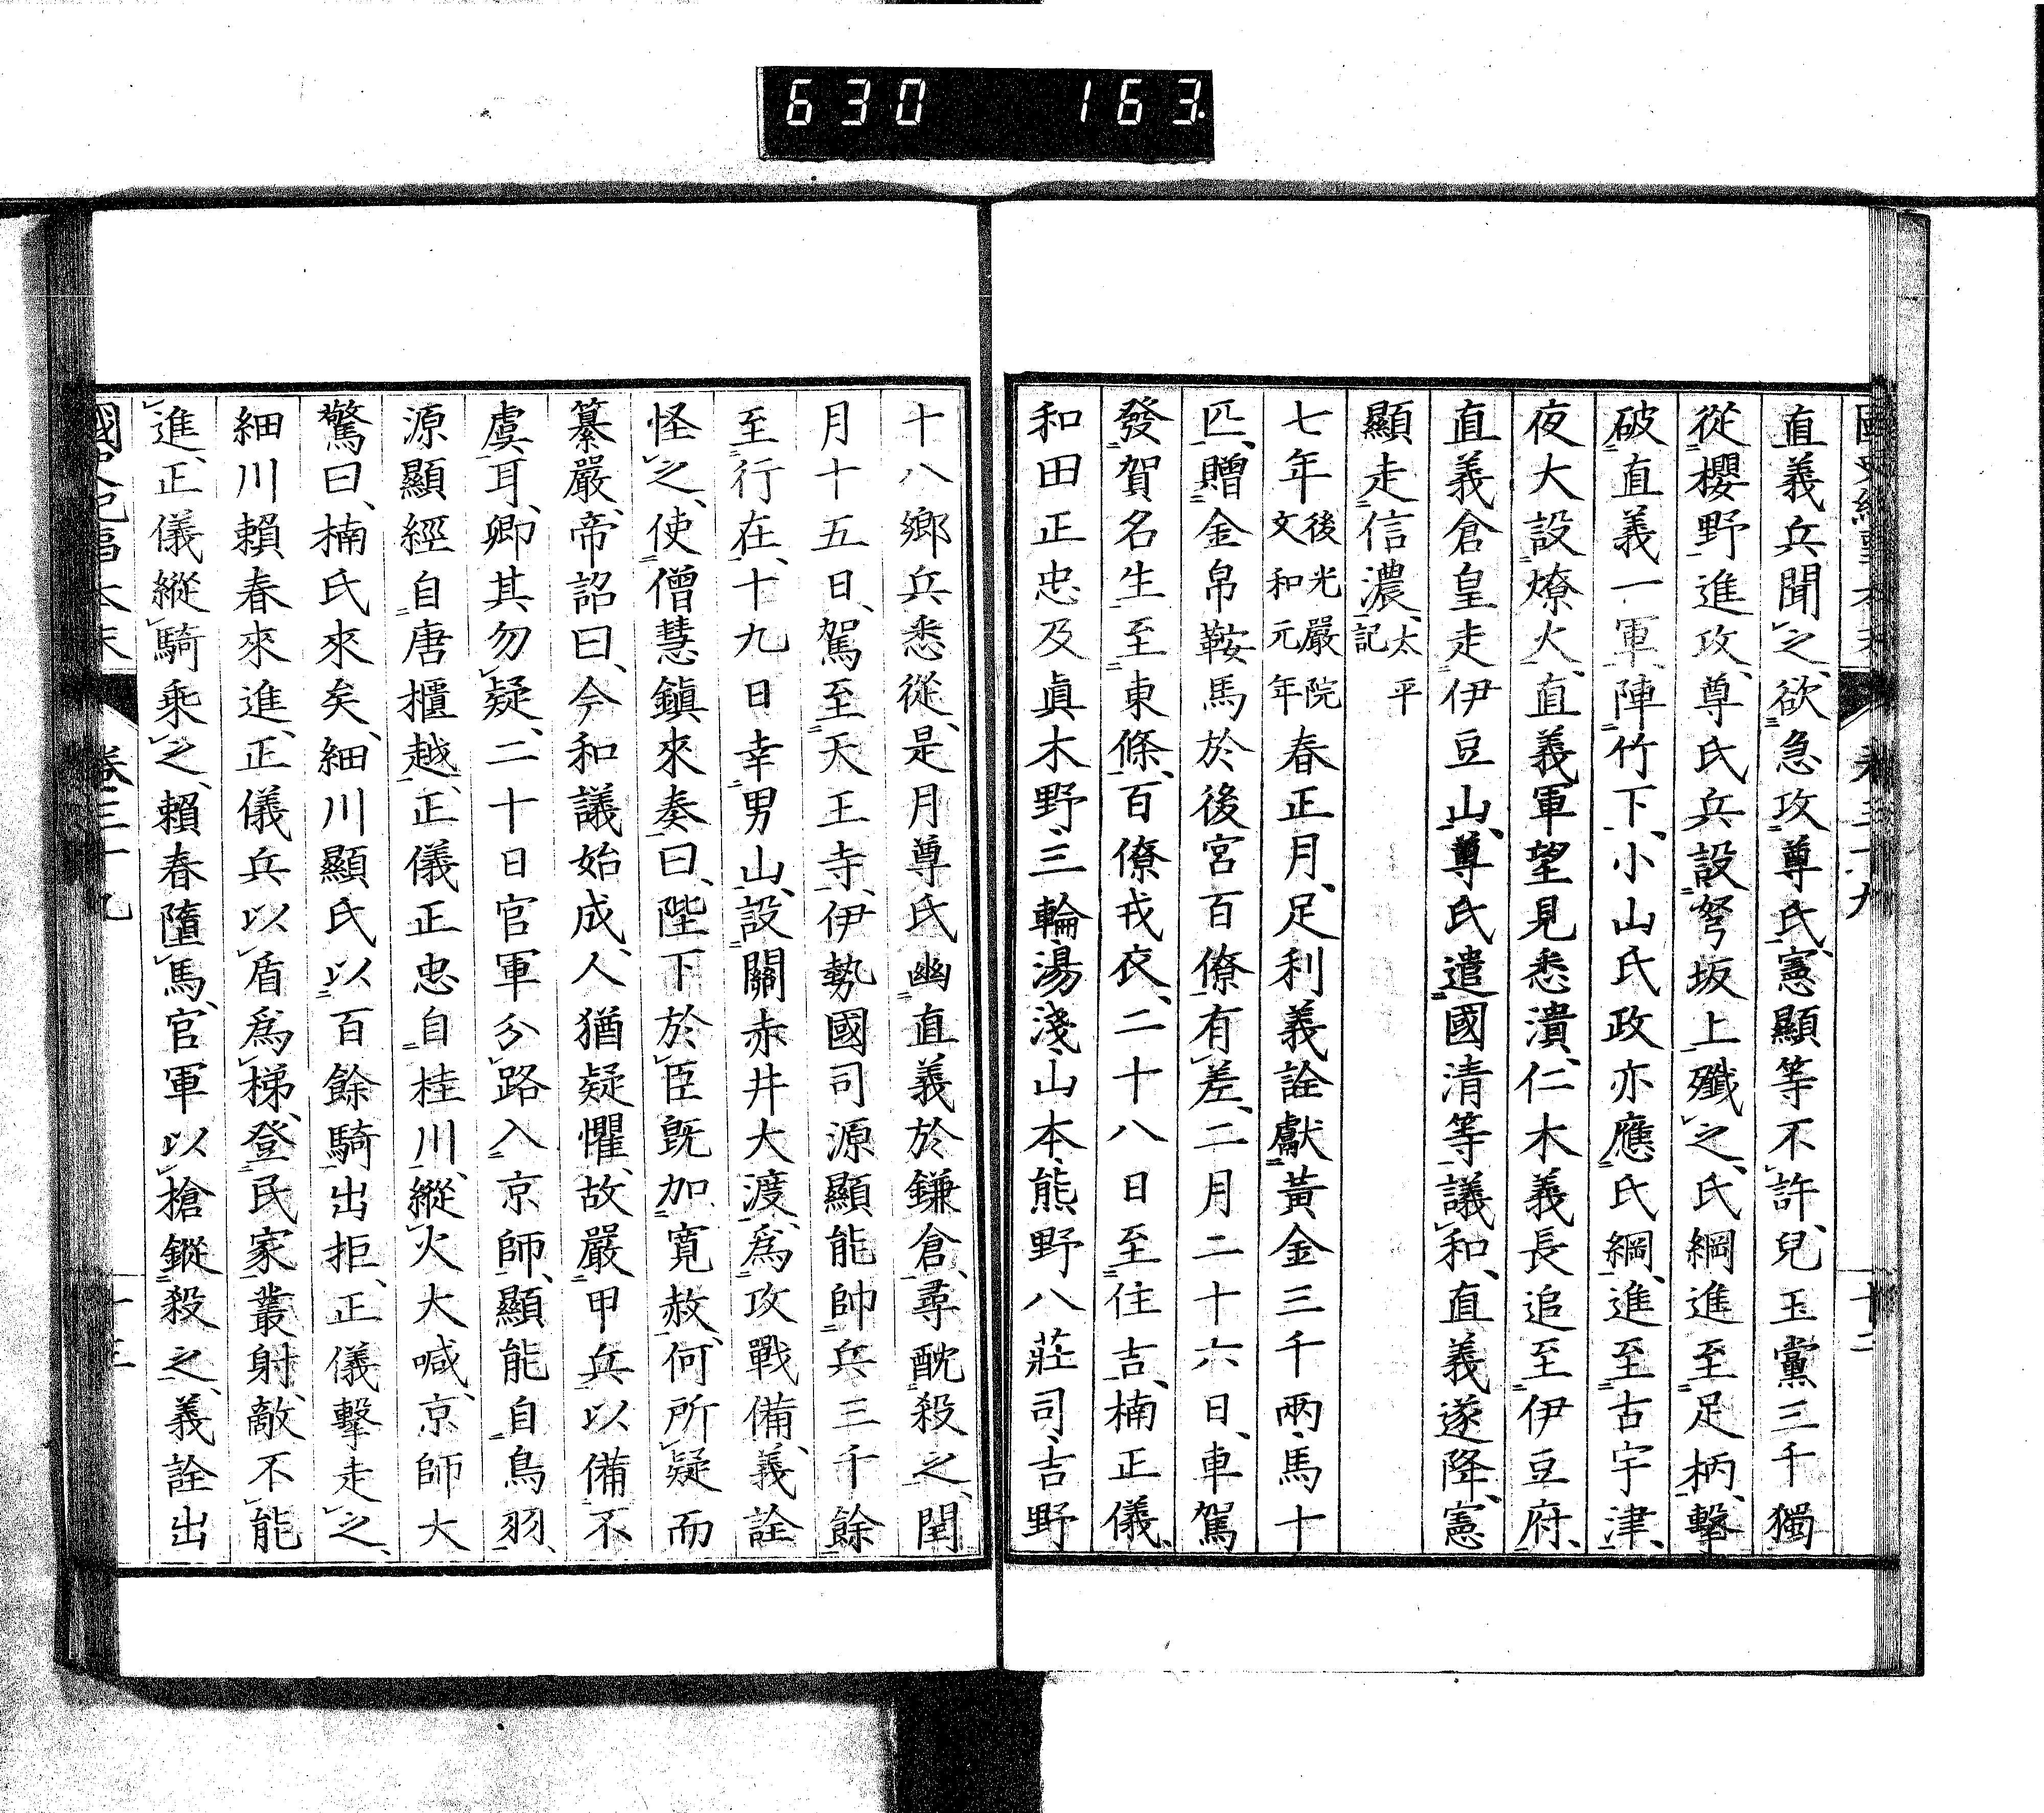 630 163
直義兵聞之、欲急攻尊氏、憲顯等不許、兒玉黨三千獨
從櫻野進攻、尊氏兵設弩坂上殲之、氏綱進至足柄、擊
破直義一軍、陣竹下、小山氏政亦應氏綱、進至古宇津、
夜大設燎火、直義軍望見悉潰、仁木義長追至伊豆府、
直義倉皇走伊豆山、尊氏遣國清等議和、直義遂降、憲
顯走信濃、太平記
七年後光嚴院文和元年春正月、足利義詮獻黃金三千兩、馬十
匹、贈金帛鞍馬於後宮百僚有差、二月二十六日、車駕
發賀名生、至東條、百僚戎衣、二十八日至住吉、楠正儀、
和田正忠及眞木野、三輪、湯淺、山本、熊野八莊司、吉野
十八鄉兵悉從、是月尊氏幽直義於鎌倉、尋酖殺之、閏
月十五日、駕至天王寺、伊勢國司源顯能帥兵三千餘
至行在、十九日幸男山、設關赤井大渡、爲攻戰備、義詮
怪之、使僧慧鎮來奏曰、陛下於臣既加寬赦、何所疑而
纂嚴、帝詔曰、今和議始成、人猶疑懼、故嚴甲兵以備不
虞耳、卿其勿疑、二十日官軍分路入京師、顯能自鳥羽、
源顯經自唐櫃越、正儀正忠自桂川、縱火大喊、京師大
驚曰、楠氏來矣、細川顯氏以百餘騎出拒、正儀擊走之、
細川賴春來進、正儀兵以盾爲梯、登民家叢射、敵不能
進、正儀縱騎乘之、賴春墮馬、官軍以槍鏦殺之、義詮出
卷三十九